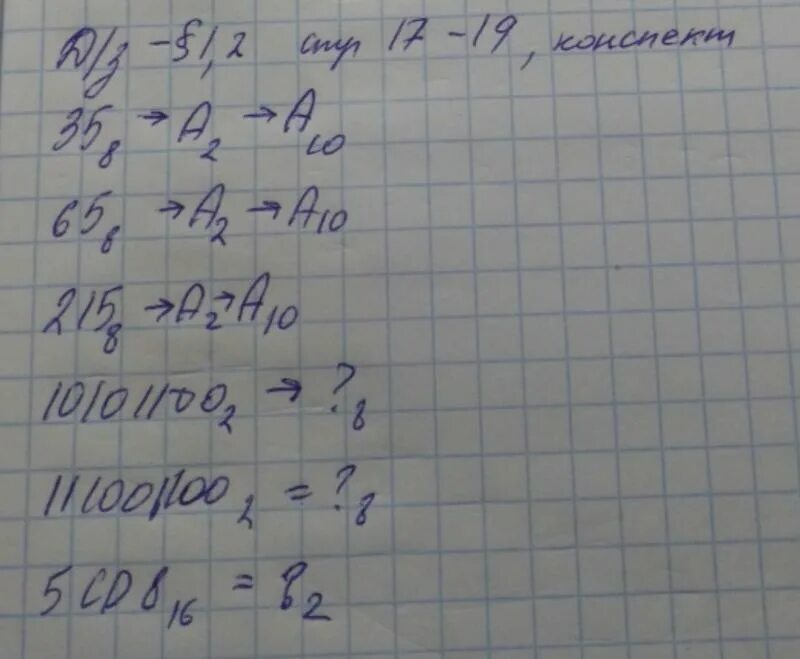 Д/з - §1,2 стр 17-19, конспект
35₈ → A₂ → A₁₀
65₈ → A₂ → A₁₀
215₈ → A₂ → A₁₀
10101100₂ → ?₈
111001100₂ = ?₈
5CD8₁₆ = ?₂